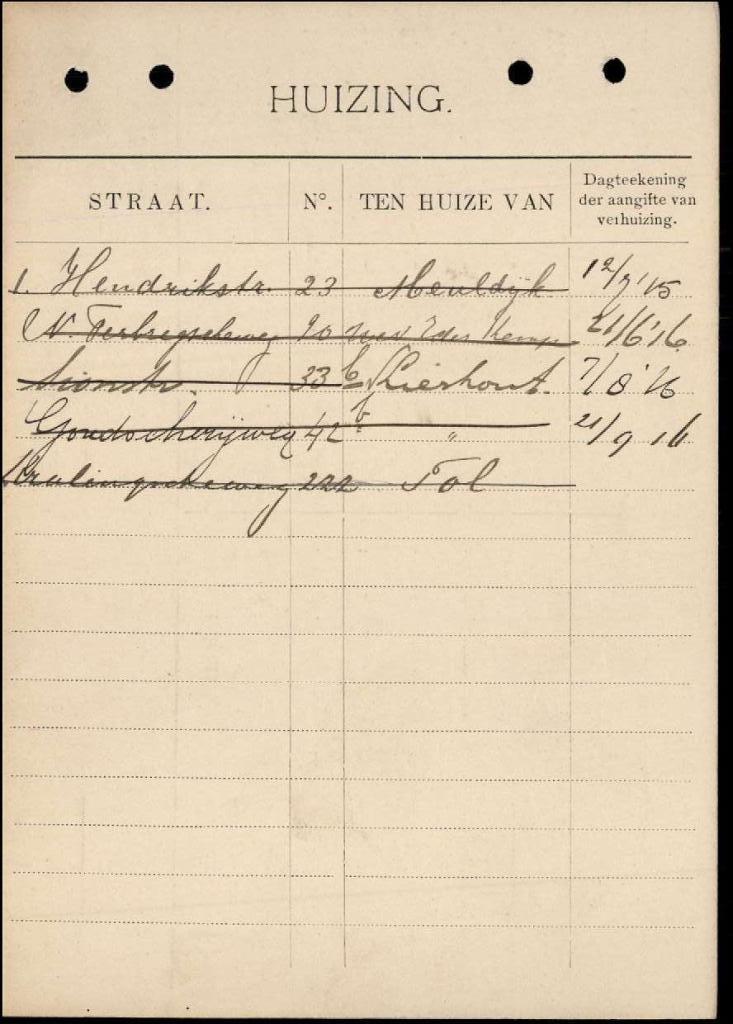 HUIZING.
STRAAT. Nº. TEN HUIZE VAN Dagteekening der aangifte van verhuizing.
1. Hendrikstr. 23 Meuldijk 12/7 '15
N. Terbregscheweg 90 21/6 '16
Sionstr. 33 b Lierhout. 7/8 '16
Goudscherijweg 42 b " 21/9 16
Kralingscheweg 222 Tol